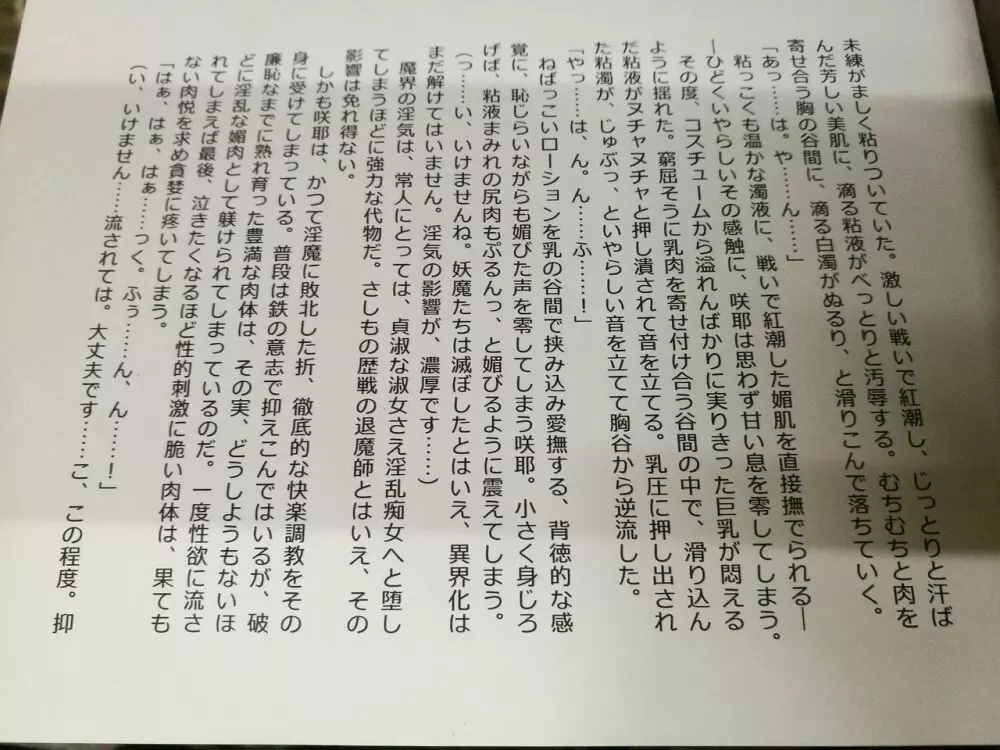 未練がましく粘りついていた。激しい戦いで紅潮し、じっとりと汗ば
んだ芳しい美肌に、滴る粘液がべっとりと汚辱する。むちむちと肉を
寄せ合う胸の谷間に、滴る白濁がぬるり、と滑りこんで落ちていく。
「あっ……は。や……ん……」
粘っこくも温かな濁液に、戦いで紅潮した媚肌を直接撫でられる―
―ひどくいやらしいその感触に、咲耶は思わず甘い息を零してしまう。
その度、コスチュームから溢れんばかりに実りきった巨乳が悶える
ように揺れた。窮屈そうに乳肉を寄せ付け合う谷間の中で、滑り込ん
だ粘液がヌチャヌチャと押し潰されて音を立てる。乳圧に押し出され
た粘濁が、じゅぶっ、といやらしい音を立てて胸谷から逆流した。
「やっ……は、ん。ん……ふ……！」
ねばっこいローションを乳の谷間で挟み込み愛撫する、背徳的な感
覚に、恥じらいながらも媚びた声を零してしまう咲耶。小さく身じろ
げば、粘液まみれの尻肉もぷるんっ、と媚びるように震えてしまう。
（っ……い、いけませんね。妖魔たちは滅ぼしたとはいえ、異界化は
まだ解けてはいません。淫気の影響が、濃厚です……）
魔界の淫気は、常人にとっては、貞淑な淑女さえ淫乱痴女へと堕し
てしまうほどに強力な代物だ。さしもの歴戦の退魔師とはいえ、その
影響は免れ得ない。
しかも咲耶は、かつて淫魔に敗北した折、徹底的な快楽調教をその
身に受けてしまっている。普段は鉄の意志で抑えこんではいるが、破
廉恥なまでに熟れ育った豊満な肉体は、その実、どうしようもないほ
どに淫乱な媚肉として躾けられてしまっているのだ。一度性欲に流さ
れてしまえば最後、泣きたくなるほど性的刺激に脆い肉体は、果ても
ない肉悦を求め貪婪に疼いてしまう。
「はぁ、はぁ、はぁ……っく。ふぅ……ん、ん……！」
（い、いけません……流されては。大丈夫です……こ、この程度。抑